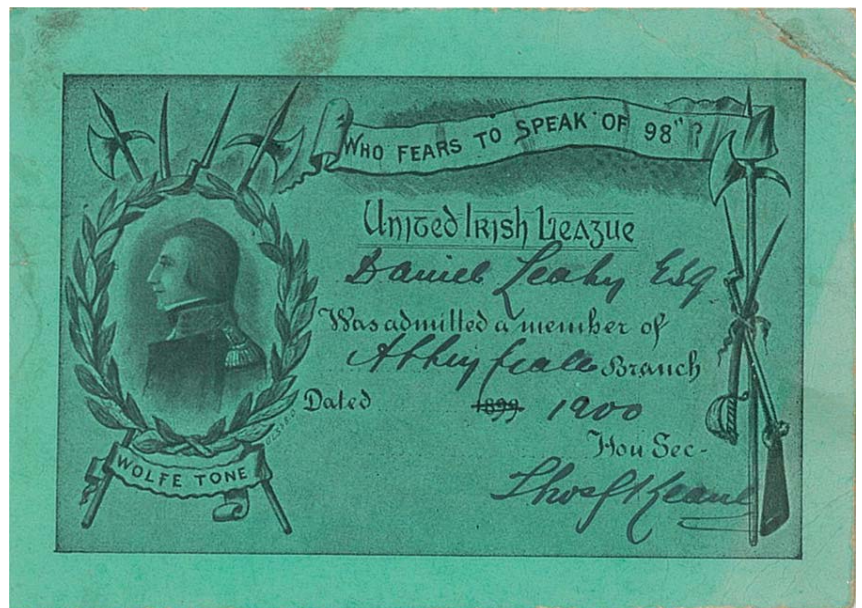 WHO FEARS TO SPEAK OF 98"?
United Irish League
Daniel Leahy Esq.
Was admitted a member of
Abbeyfeale Branch
Dated 1899 1900
Hon Sec-
Thos J Keane
WOLFE TONE